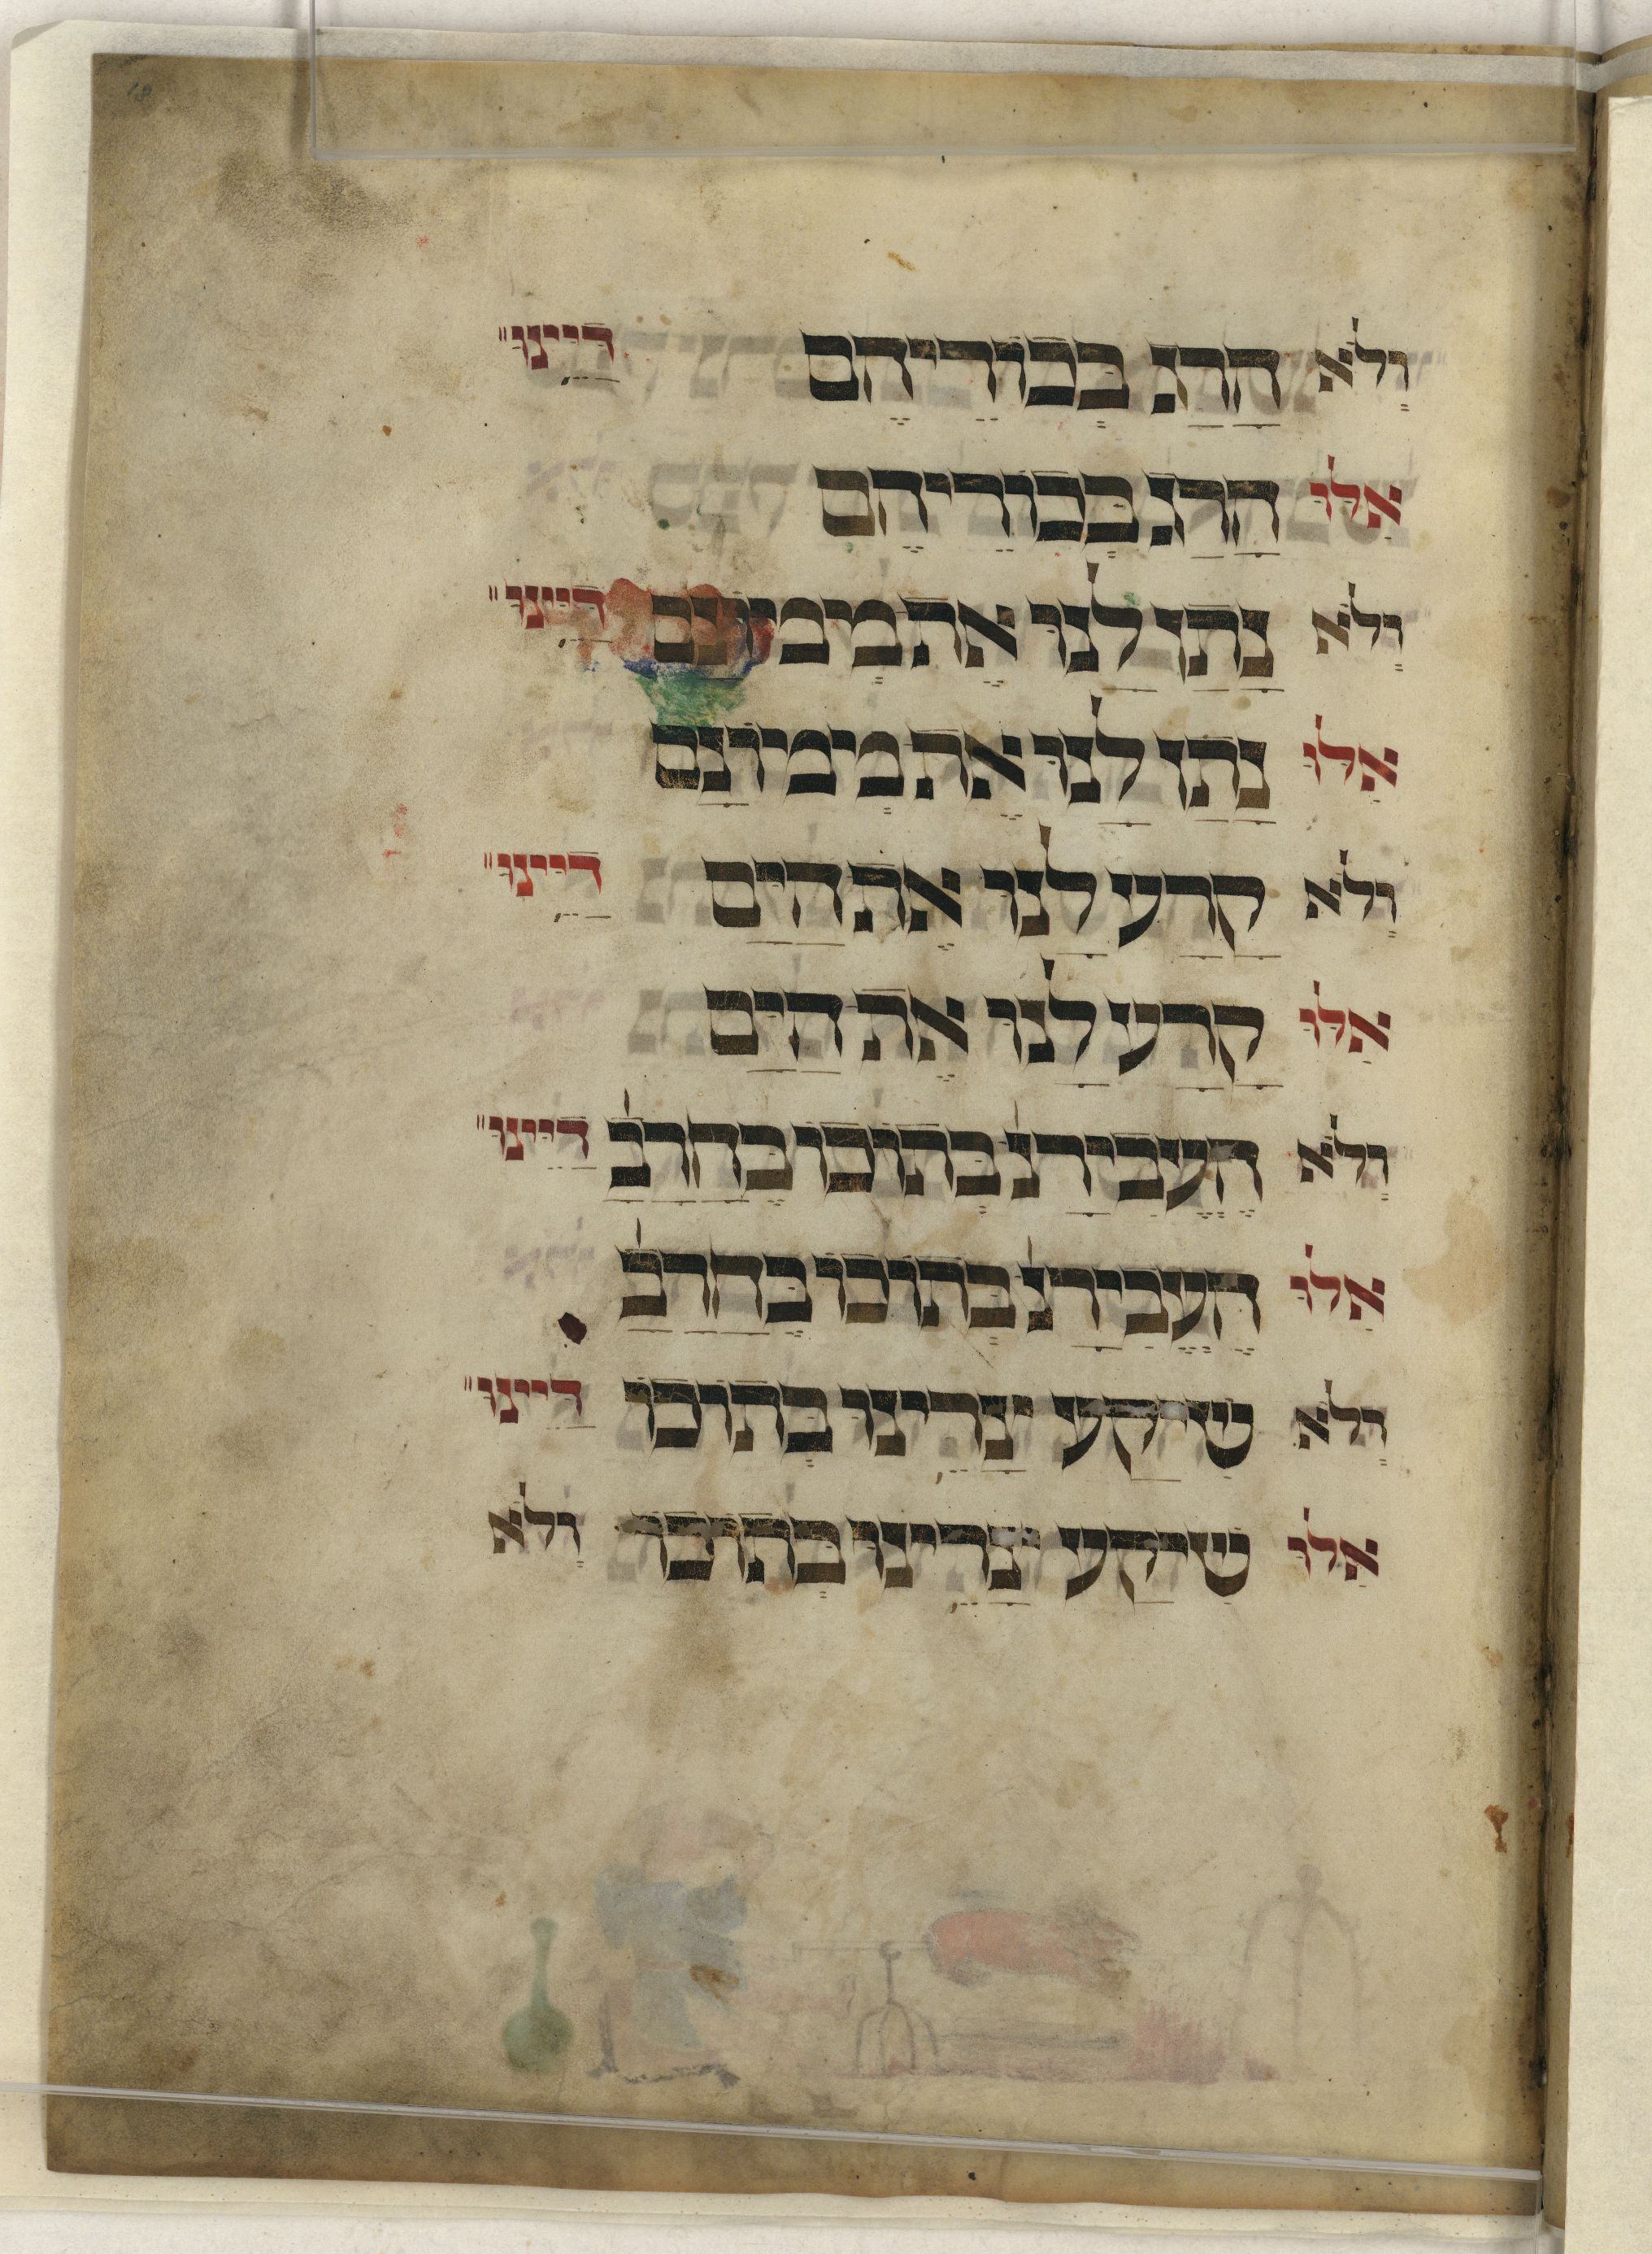 18
ולא הרג בכוריהם דיינו"
אלו הרג בכוריהם
ולא נתן לנו את ממונם דיינו"
אלו נתן לנו את ממונם
ולא קרע לנו את הים דיינו"
אלו קרע לנו את הים
ולא העבירנ' בתוכו בחרב' דיינו"
אלו העבירנ' בתוכו בחרב'
ולא שיקע צרינו בתוכו דיינו"
אלו שיקע צרינו בתוכו ולא